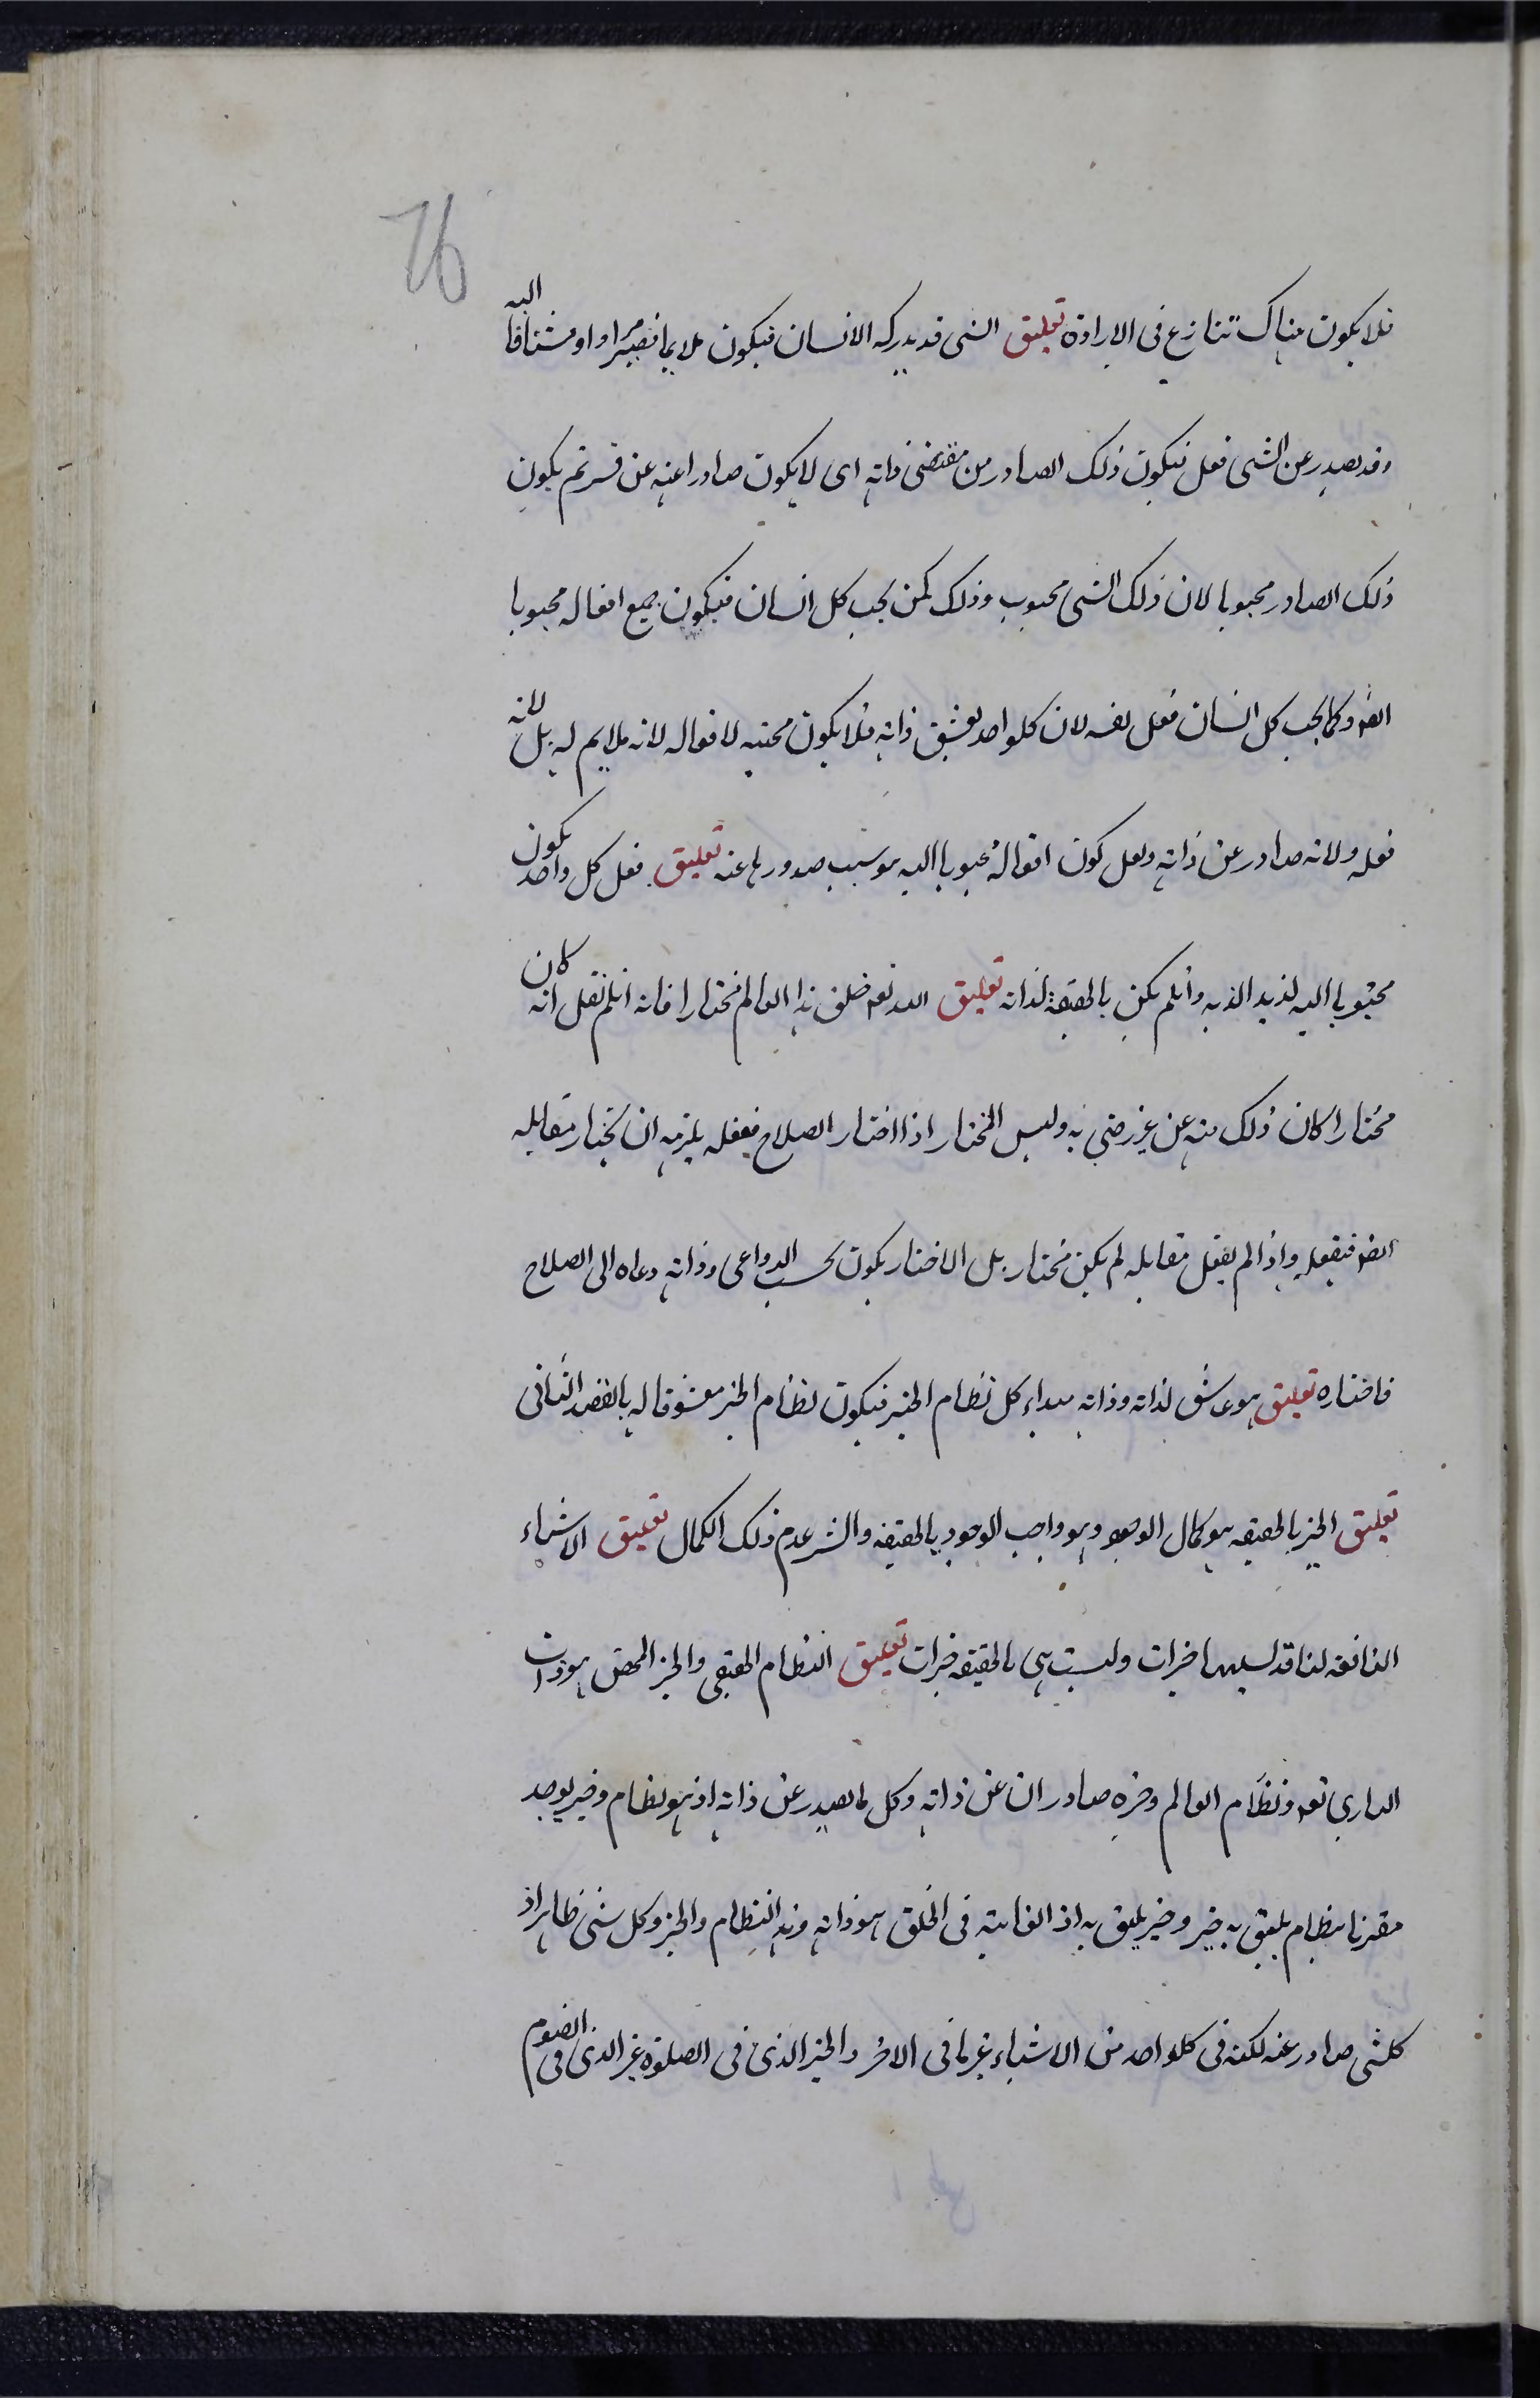 76
فلا يكون هناك تنازع فى الارادة تعليق الشى قد يدركه الانسان فيكون ملايما فيصير مرادا او مشتاقا اليه
وقد يصدر عن الشى فعل فيكون ذلك الصادر من مقتضى ذاته اى لا يكون صادرا عنه عن قسر ثم يكون
ذلك الصادر محبوبا لان ذلك الشى محبوب وذلك كمن يحب كل انسان فيكون جميع افعاله محبوبا
ايضا وكما يحب كل انسان فعل نفسه لان كلواحد يعشق ذاته فلا يكون محبته لافعاله لانه ملايم له بل لانه
فعله ولانه صادر عن ذاته ولعل كون افعاله محبوبا اليه هو سبب صدورها عنه تعليق فعل كل واحد يكون
محبوبا اليه لذيذا لذيه وانلم يكن بالحقيقة لذاته تعليق الله تعه خلق هذا العالم مختارا فانه انلم نقل انه كان
مختارا كان ذلك منه عن غير رضى به وليس المختار اذا اختار الصلاح ففعله يلزمه ان يختار مقابله
ايضا فيفعله واذا لم يفعل مقابله لم يكن مختار بل الاختيار يكون بحسب الدواعى وذاته دعاه الى الصلاح
فاختاره تعليق هو عاشق لذاته وذاته مبداء كل نظام الخير فيكون نظام الخير معشوقا له بالقصد الثانى
تعليق الخير بالحقيقه هو كمال الوجود وهو واجب الوجود بالحقيقه والشر عدم ذلك الكمال تعليق الاشياء
النافعه لنا قد نسميها خيرات وليست هى بالحقيقه خيرات تعليق النظام الحقيقى والخير المحض هو ذات
البارى تعه ونظام العالم وخيره صادران عن ذاته وكل ما يصدر عن ذاته اذ هو نظام وخير يوجد
مقترنا بنظام يليق به خير وخير يليق به اذ الغاية فى الخلق هو ذاته وهذا النظام والخير وكل شى ظاهر اذ
كلشى صادر عنه لكنه فى كلواحد من الاشياء غير ما فى الاخر والخير الذى فى الصلوة غير الذى فى الصوم